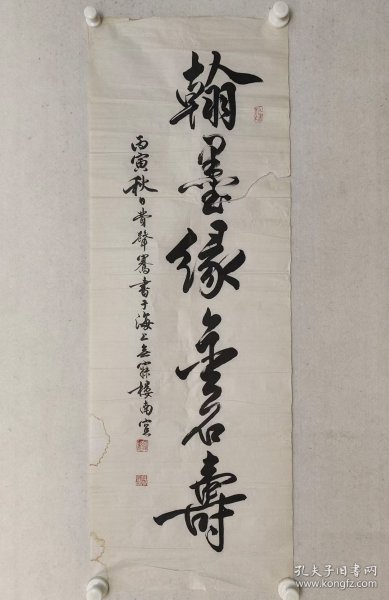 翰墨缘金石寿
丙寅秋日费声骞书于海上无寐楼南窗
孔夫子旧书网
www.kongfz.com